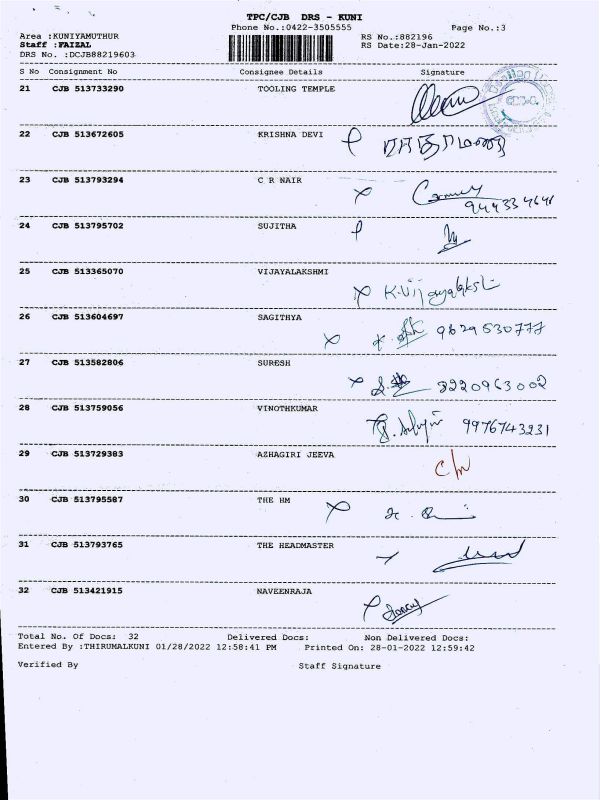 TPC/CJB DRS - KUNI
Phone No.:0422-3505555 Page No.:3
Area :KUNIYAMUTHUR RS No.:882196
Staff :FAIZAL RS Date:28-Jan-2022
DRS No. :DCJB88219603
S No Consignment No Consignee Details Signature
21 CJB 513733290 TOOLING TEMPLE
22 CJB 513672605 KRISHNA DEVI
23 CJB 513793294 C R NAIR
24 CJB 513795702 SUJITHA
25 CJB 513365070 VIJAYALAKSHMI K.Vijayalakshi
26 CJB 513604697 SAGITHYA 9629530777
27 CJB 513582806 SURESH 3220963002
28 CJB 513759056 VINOTHKUMAR 9976743231
29 CJB 513729383 AZHAGIRI JEEVA C/N
30 CJB 513795587 THE HM
31 CJB 513793765 THE HEADMASTER
32 CJB 513421915 NAVEENRAJA
Total No. Of Docs: 32 Delivered Docs: Non Delivered Docs:
Entered By :THIRUMALKUNI 01/28/2022 12:58:41 PM Printed On: 28-01-2022 12:59:42
Verified By Staff Signature